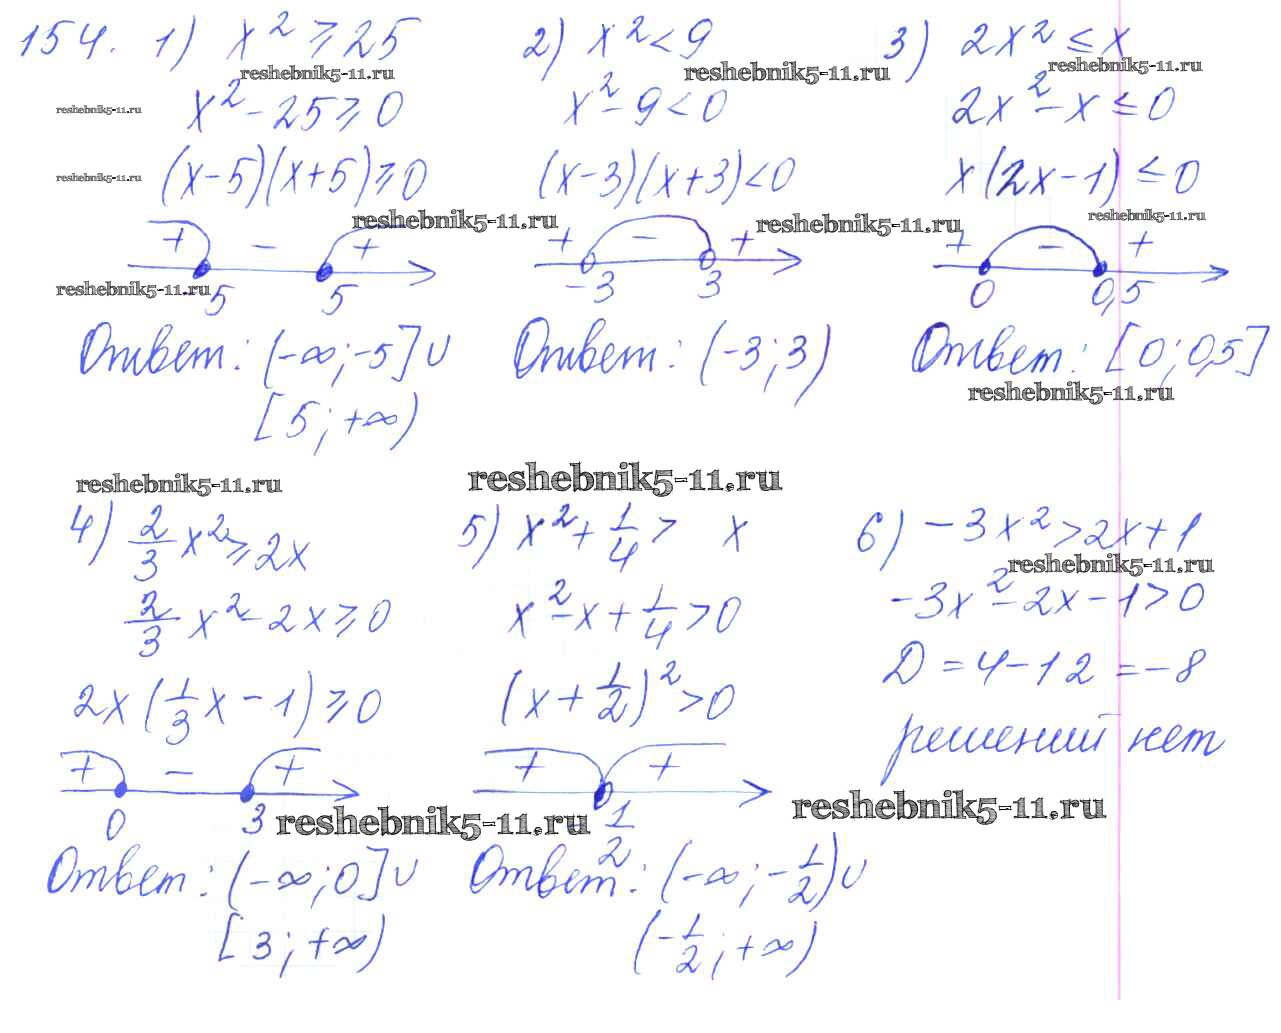 154. 1) x² ≥ 25
reshebnik5-11.ru
x² - 25 ≥ 0
reshebnik5-11.ru
(x-5)(x+5) ≥ 0
reshebnik5-11.ru
reshebnik5-11.ru
+ - +
5 5
reshebnik5-11.ru
Ответ: (-∞; -5] ∪
[5; +∞)
2) x² < 9
reshebnik5-11.ru
x² - 9 < 0
(x-3)(x+3) < 0
reshebnik5-11.ru
+ - +
-3 3
Ответ: (-3; 3)
3) 2x² ≤ x
reshebnik5-11.ru
2x² - x ≤ 0
x(2x-1) ≤ 0
reshebnik5-11.ru
+ - +
0 0,5
Ответ: [0; 0,5]
reshebnik5-11.ru
reshebnik5-11.ru
reshebnik5-11.ru
4) 2/3 x² ≥ 2x
2/3 x² - 2x ≥ 0
2x(1/3 x - 1) ≥ 0
+ - +
0 3
reshebnik5-11.ru
Ответ: (-∞; 0] ∪
[3; +∞)
5) x² + 1/4 > x
x² - x + 1/4 > 0
(x + 1/2)² > 0
+ +
1/2
Ответ: (-∞; -1/2) ∪
(-1/2; +∞)
6) -3x² > 2x + 1
reshebnik5-11.ru
-3x² - 2x - 1 > 0
D = 4 - 12 = -8
решений нет
reshebnik5-11.ru